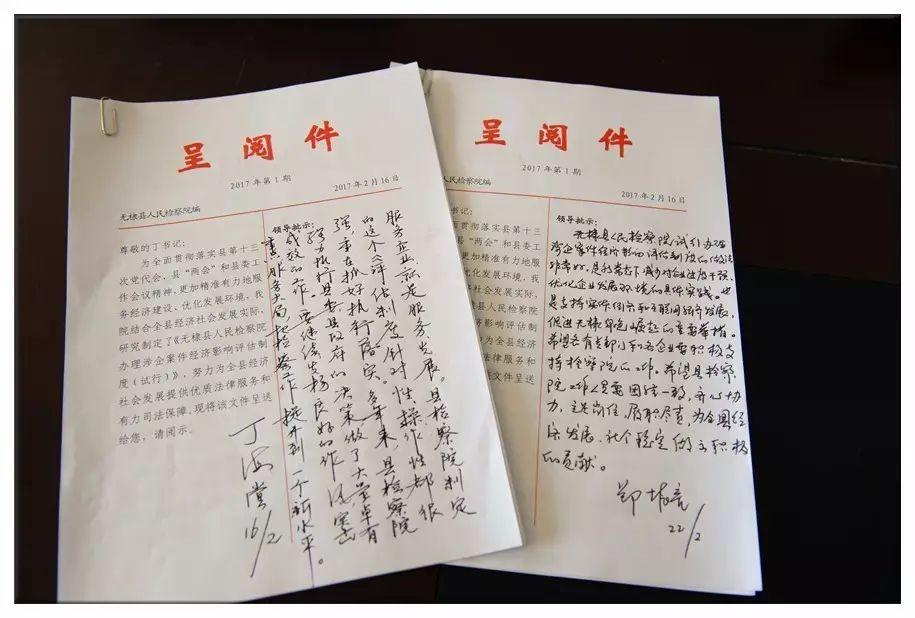 呈阅件
2017年第1期 2017年2月16日
无棣县人民检察院编
尊敬的丁书记：
为全面贯彻落实县第十三
次党代会、县“两会”和县委工
作会议精神，更加精准有力地服
务经济建设、优化发展环境，我
院结合全县经济社会发展实际，
研究制定了《无棣县人民检察院
办理涉企案件经济影响评估制
度（试行）》，努力为全县经济
社会发展提供优质法律服务和
有力司法保障。现将该文件呈送
给您，请阅示。
领导批示：
服务企业就是服务发展。县检察院制定
的这个评估制度针对性操作性都很
强，重在抓好执行落实。多年来，县检察院
努力执行县委县政府的决策做了大量卓有
成效的工作。要继续发扬良好的作风，突出
服务大局，把检察工作提升到一个新水平。
丁海堂
16/2
呈阅件
2017年第1期 2017年2月16日
民检察院编
丁书记：
面贯彻落实县第十三
县“两会”和县委工
、更加精准有力地服
、优化发展环境，我
济社会发展实际，
无棣县人民检察院
件经济影响评估制
努力为全县经济
优质法律服务和
现将该文件呈送
示。
领导批示：
无棣县人民检察院《试行办理
涉企案件经济影响评估制度》的做法
非常好，是新常态下减少对企业法度干预，
优化企业发展环境的具体实践。也
是支持实体
促进无棣早克崛起的重要举措。
希望各有关部门和各企业要积极支
持检察院的工作。希望县检察
院工作人员要团结一致，齐心协
力，立足岗位，履职尽责，为全县经
济发展、社会稳定做出积极
的贡献。
22/2